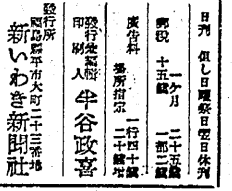 日刊 但し日曜祭日翌日休刊
一ケ月 二十五錢
一部二錢
郵税 十五錢
廣告料 一行四十錢
場所指定 二十錢増
發行兼編輯
印刷人 半谷政喜
發行所
福島縣平市大町二十三番地
新いわき新聞社